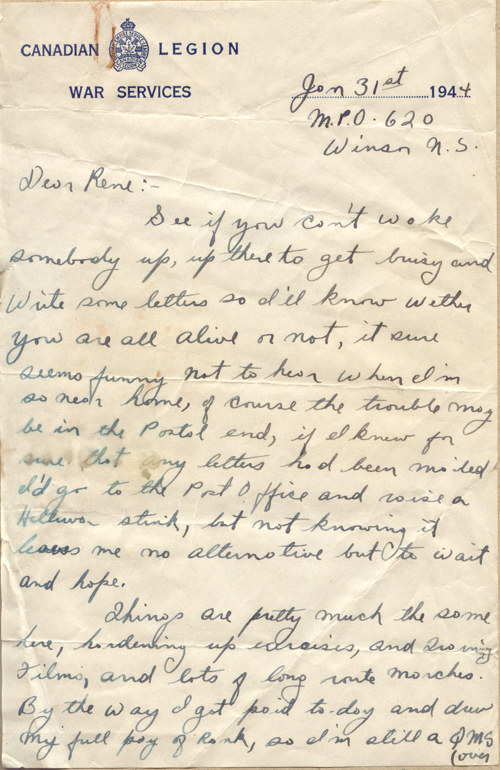 CANADIAN LEGION
WAR SERVICES
Jan 31st 1944
M.P.O. 620
Winsor N.S.
Dear Rene:-
See if you can't wake
somebody up, up there to get buisy and
Write some letters so I'll know wether
you are all alive or not, it sure
seems funny not to hear when I'm
so near home, of course the trouble may
be in the Postal end, if I knew for
sure that any letters had been mailed
I'd go to the Post Office and raise a
stink, but not knowing it
leaves me no alternative but to wait
and hope.
Things are pretty much the same
here, hardening up exercises, and
Films, and lots of long route marches.
By the way I got paid to-day and drew
My full pay of Rank, so I'm still a QMS
(over